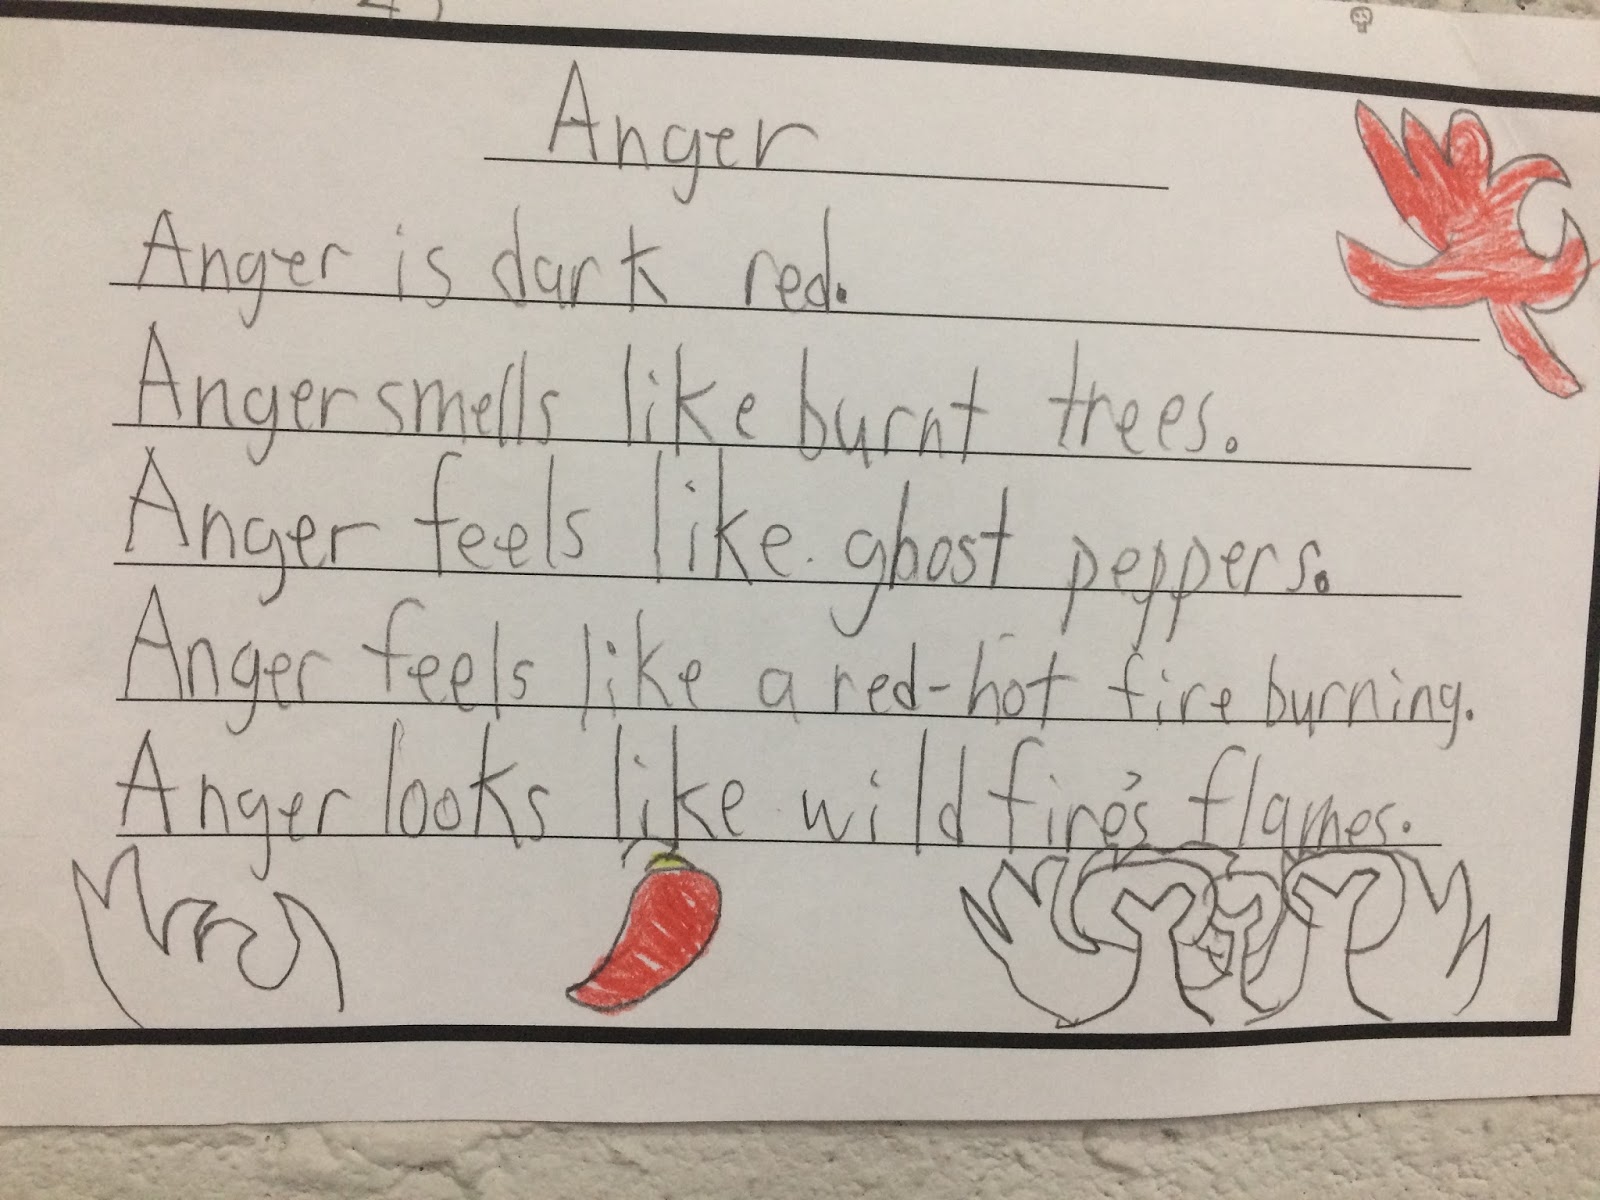 Anger
Anger is dark red.
Anger smells like burnt trees.
Anger feels like ghost peppers.
Anger feels like a red-hot fire burning.
Anger looks like wild fire's flames.